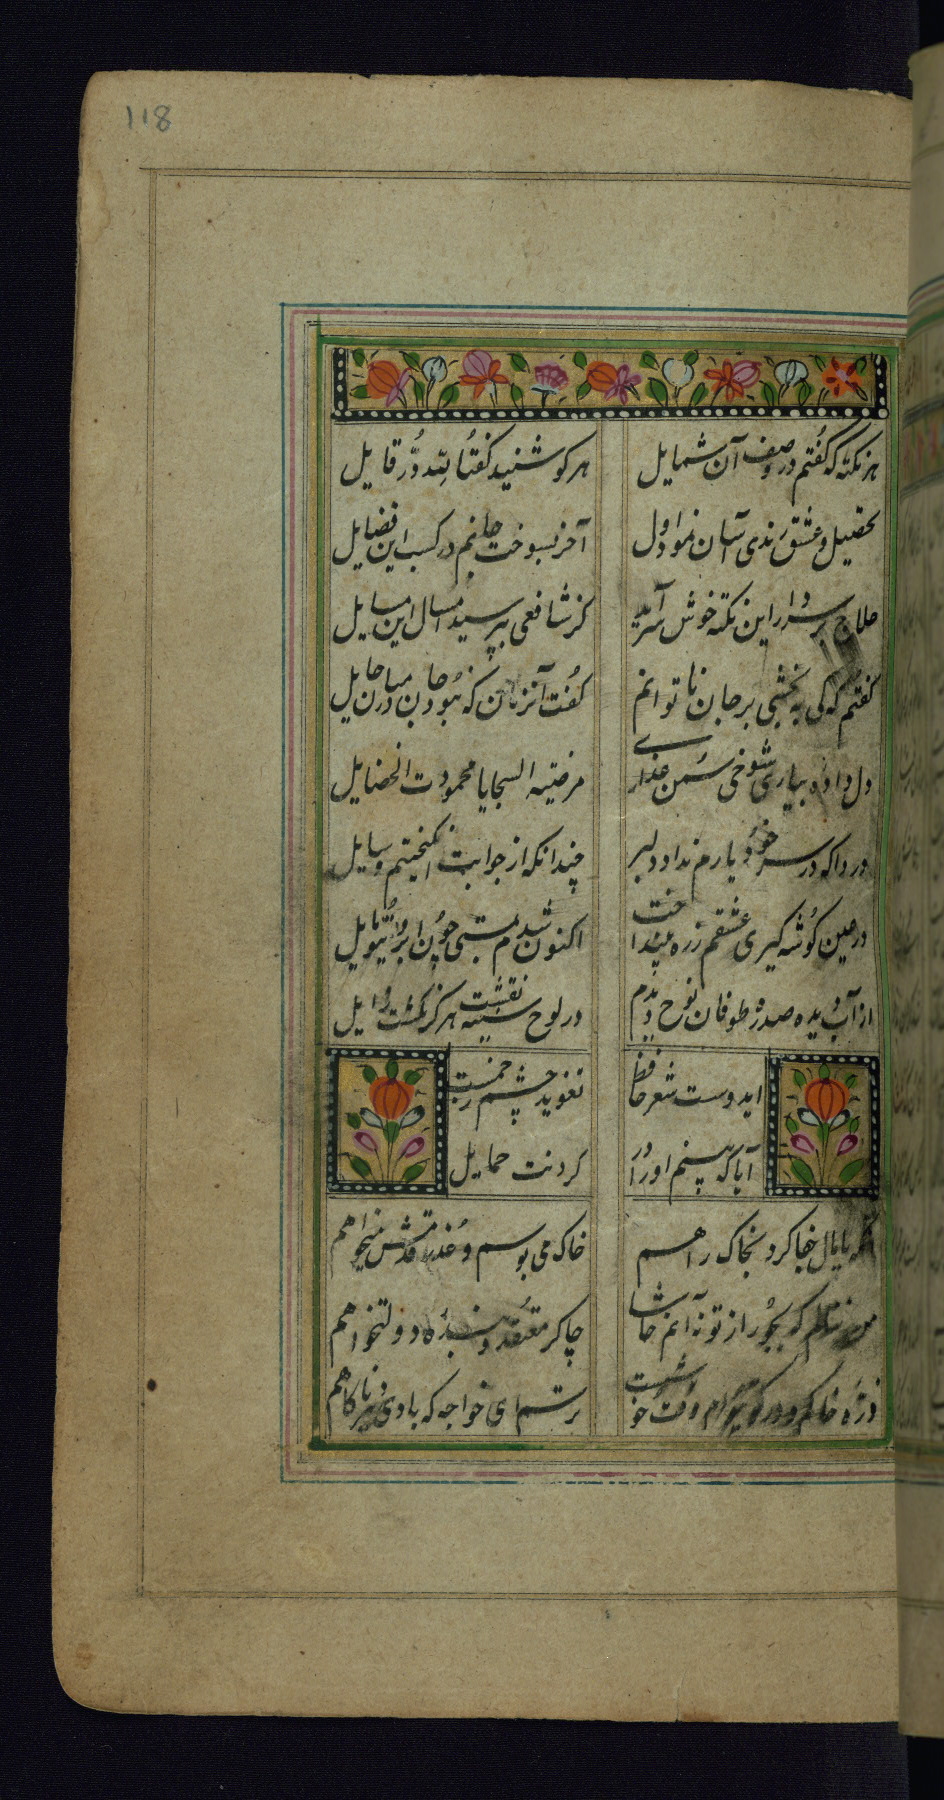 118
هر نکته که گفتم در وصف آن شمایل هر کو شنید گفتا لله در قایل
تحصیل عشق و رندی آسان نمود اول آخر بسوخت جانم در کسب این فضایل
حلاج بر سر دار این نکته خوش سراید کز شافعی بپرسید امسال این مسایل
گفتم که کی به بخشی بر جان ناتوانم گفت آنزمان که نبود جان در میان حایل
دل داده بیاری شوخی سمن عذاری مرضیه السجایا محمودت الخضایل
دردا که در سر خود یارم نداد دلبر چندانکه از جوابت انگیختیم وسایل
در عین گوشه گیری عشقم زره بینداخت اکنون شدم بمستی چون ابروی تو مایل
از آب دیده صد ره طوفان نوح دیدم در لوح سینه نقشت هرگز نگشت زایل
ایدوست شعر حافظ تعویذ چشم زخمت
آیا که بینم او را در گردنت حمایل
پایمال جفا کرد بخاک راهم خاک می بوسم و عذر قدمش میخواهم
من نه آنم که بجور از تو حاشا چاکر معتقد و بنده دولتخواهم
ذره خاکم و در کوی توام وقت خوشست ترسم ای خواجه که بادی ناگاهم